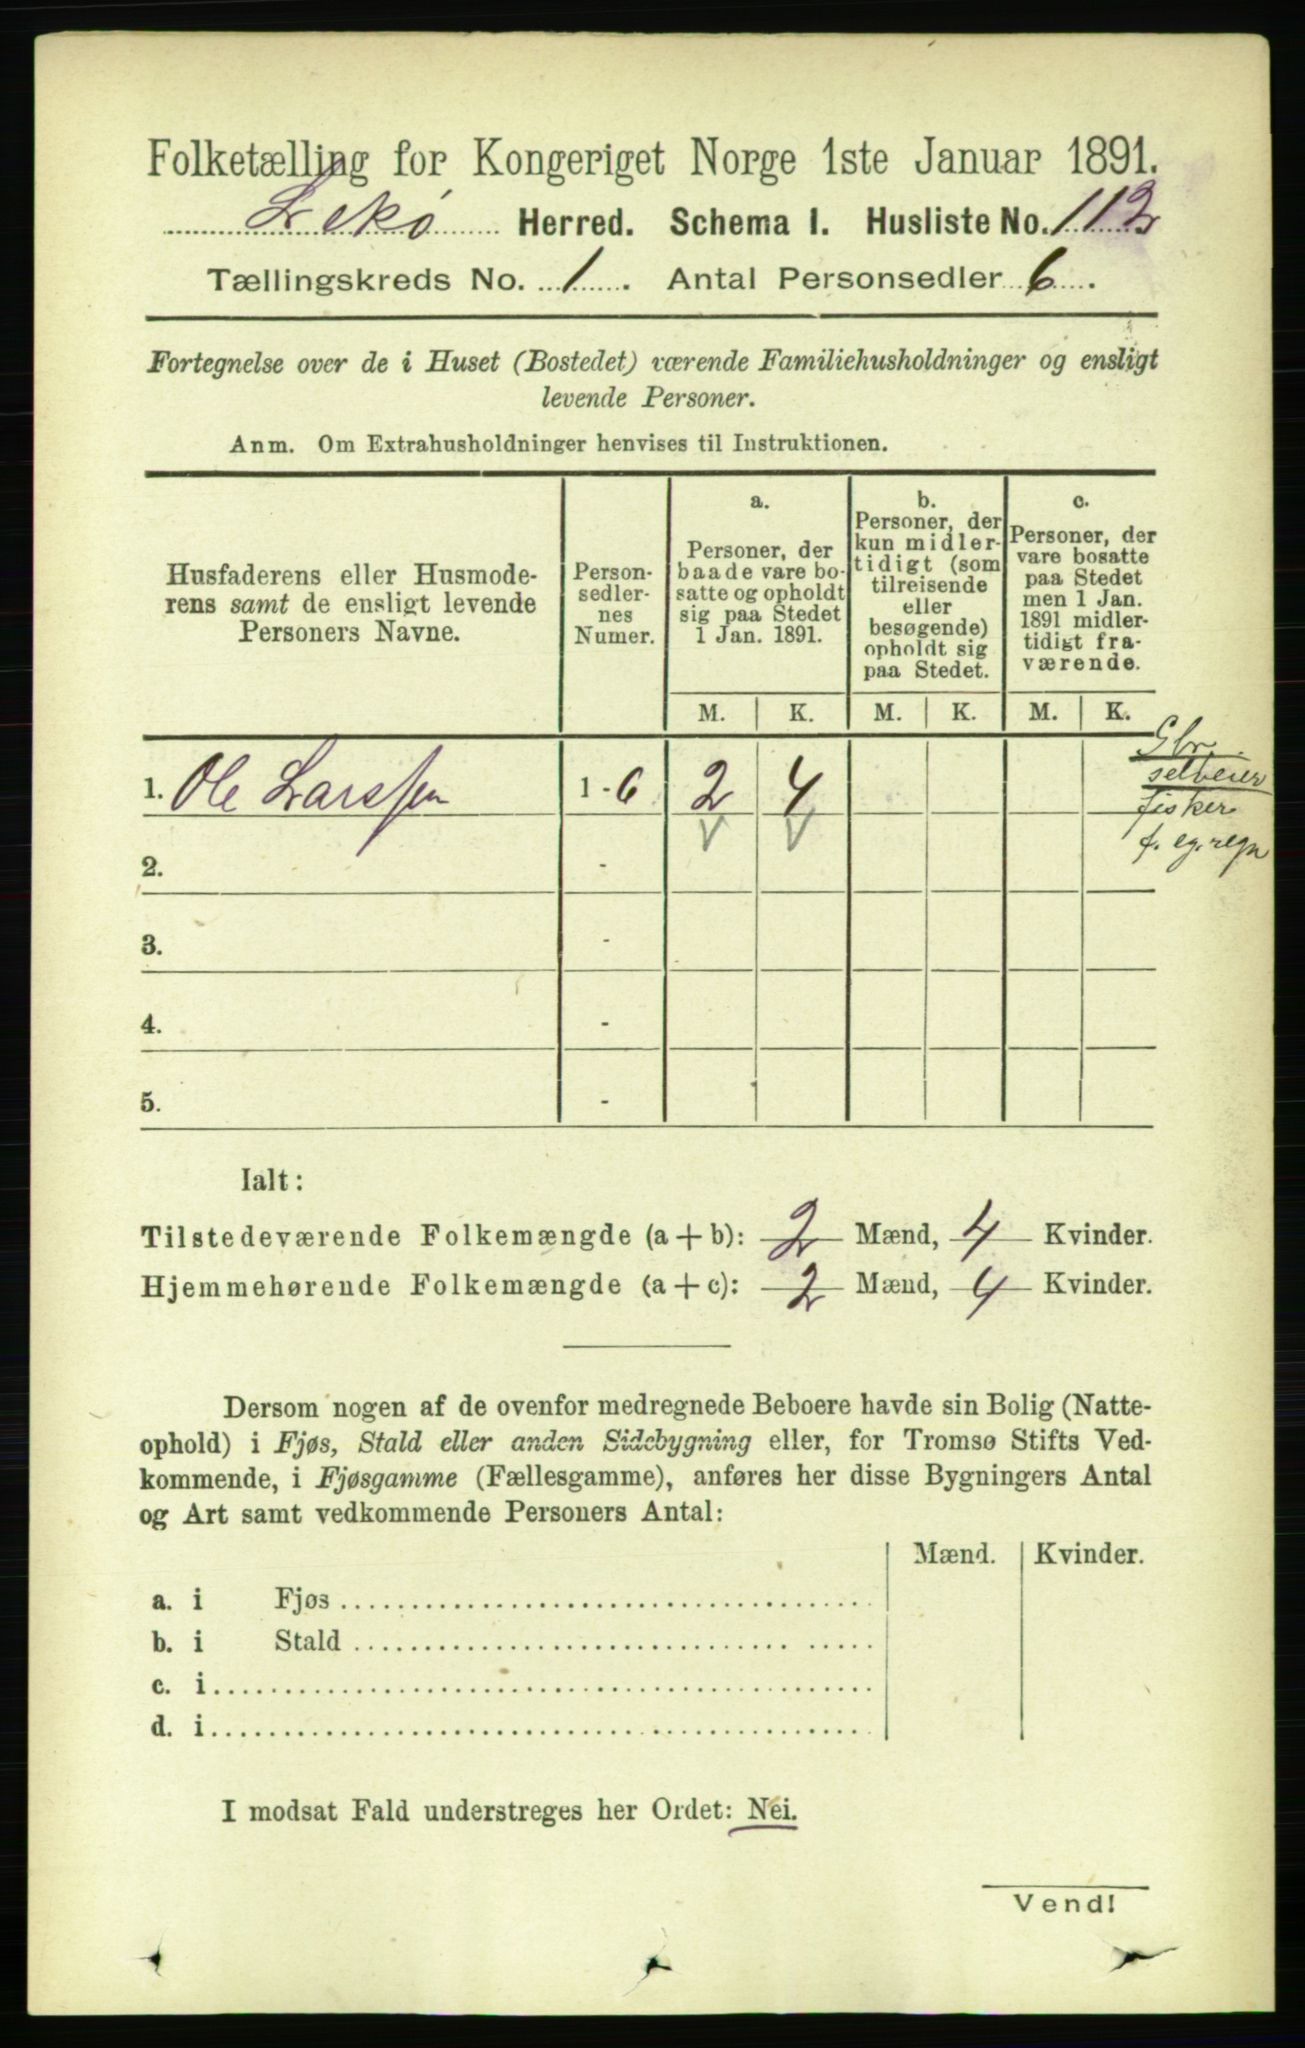 Folketælling for Kongeriget Norge 1ste Januar 1891.
Lekø Herred. Schema I. Husliste No. 112
Tællingskreds No. 1. Antal Personsedler 6.
Fortegnelse over de i Huset (Bostedet) værende Familiehusholdninger og ensligt
levende Personer.
Anm. Om Extrahusholdninger henvises til Instruktionen.
Husfaderens eller Husmode-
rens samt de ensligt levende
Personers Navne.
Person-
sedler-
nes
Numer.
a.
Personer, der
baade vare bo-
satte og opholdt
sig paa Stedet
1 Jan. 1891.
b.
Personer, der
kun midler-
tidigt (som
tilreisende
eller
besøgende)
opholdt sig
paa Stedet.
c.
Personer, der
vare bosatte
paa Stedet
men 1 Jan.
1891 midler-
tidigt fra-
værende.
M. K. M. K. M. K.
1. Ole Larssen 1-6 2 4
Gbr.
selveier
fisker
f. eg. regn
v v
2. -
3. -
4. -
5. -
Ialt:
Tilstedeværende Folkemængde (a + b): 2 Mænd, 4 Kvinder.
Hjemmehørende Folkemængde (a + c): 2 Mænd, 4 Kvinder.
Dersom nogen af de ovenfor medregnede Beboere havde sin Bolig (Natte-
ophold) i Fjøs, Stald eller anden Sidebygning eller, for Tromsø Stifts Ved-
kommende, i Fjøsgamme (Fællesgamme), anføres her disse Bygningers Antal
og Art samt vedkommende Personers Antal:
Mænd. Kvinder.
a. i Fjøs
b. i Stald
c. i
d. i
I modsat Fald understreges her Ordet: Nei.
Vend!